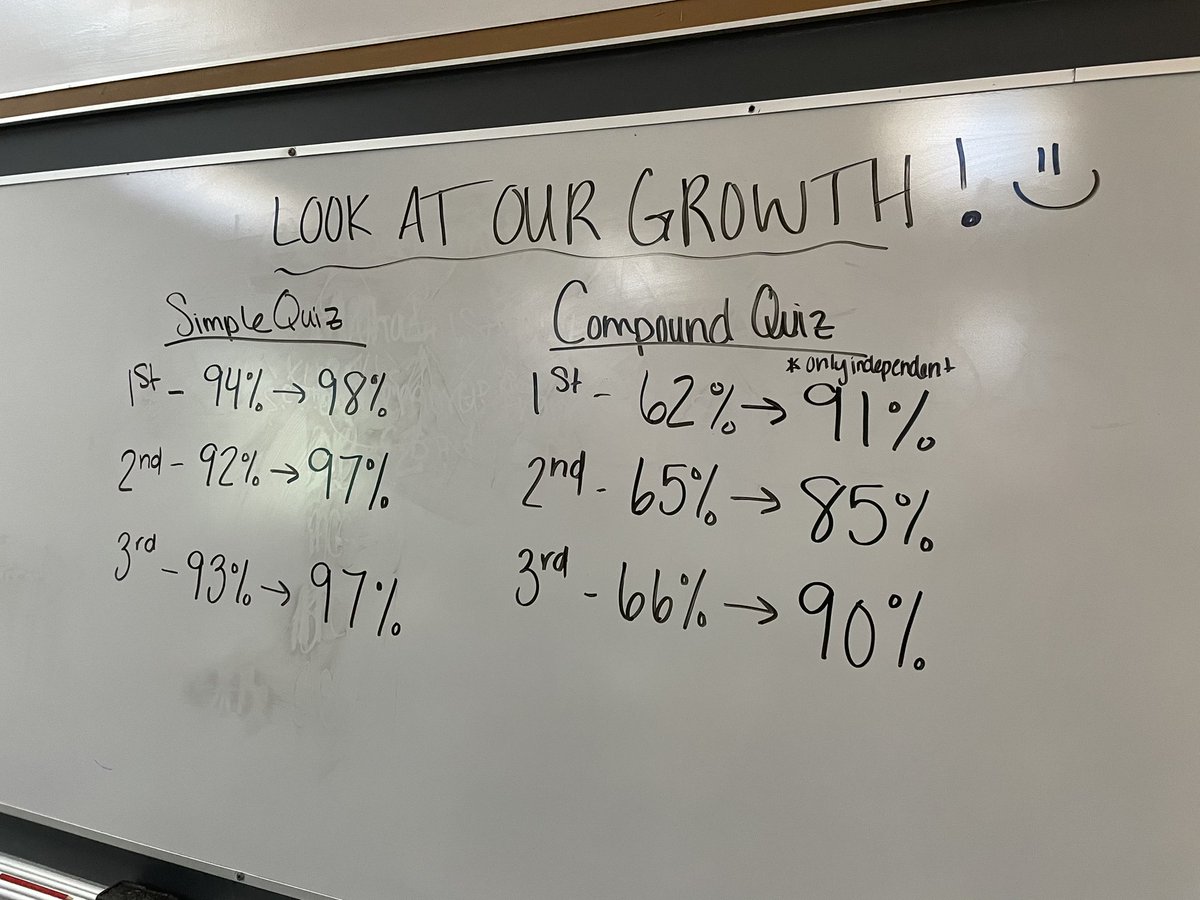 LOOK AT OUR GROWTH!
Simple Quiz
1st - 94% → 98%
2nd - 92% → 97%
3rd - 93% → 97%
Compound Quiz
* only independent
1st - 62% → 91%
2nd - 65% → 85%
3rd - 66% → 90%